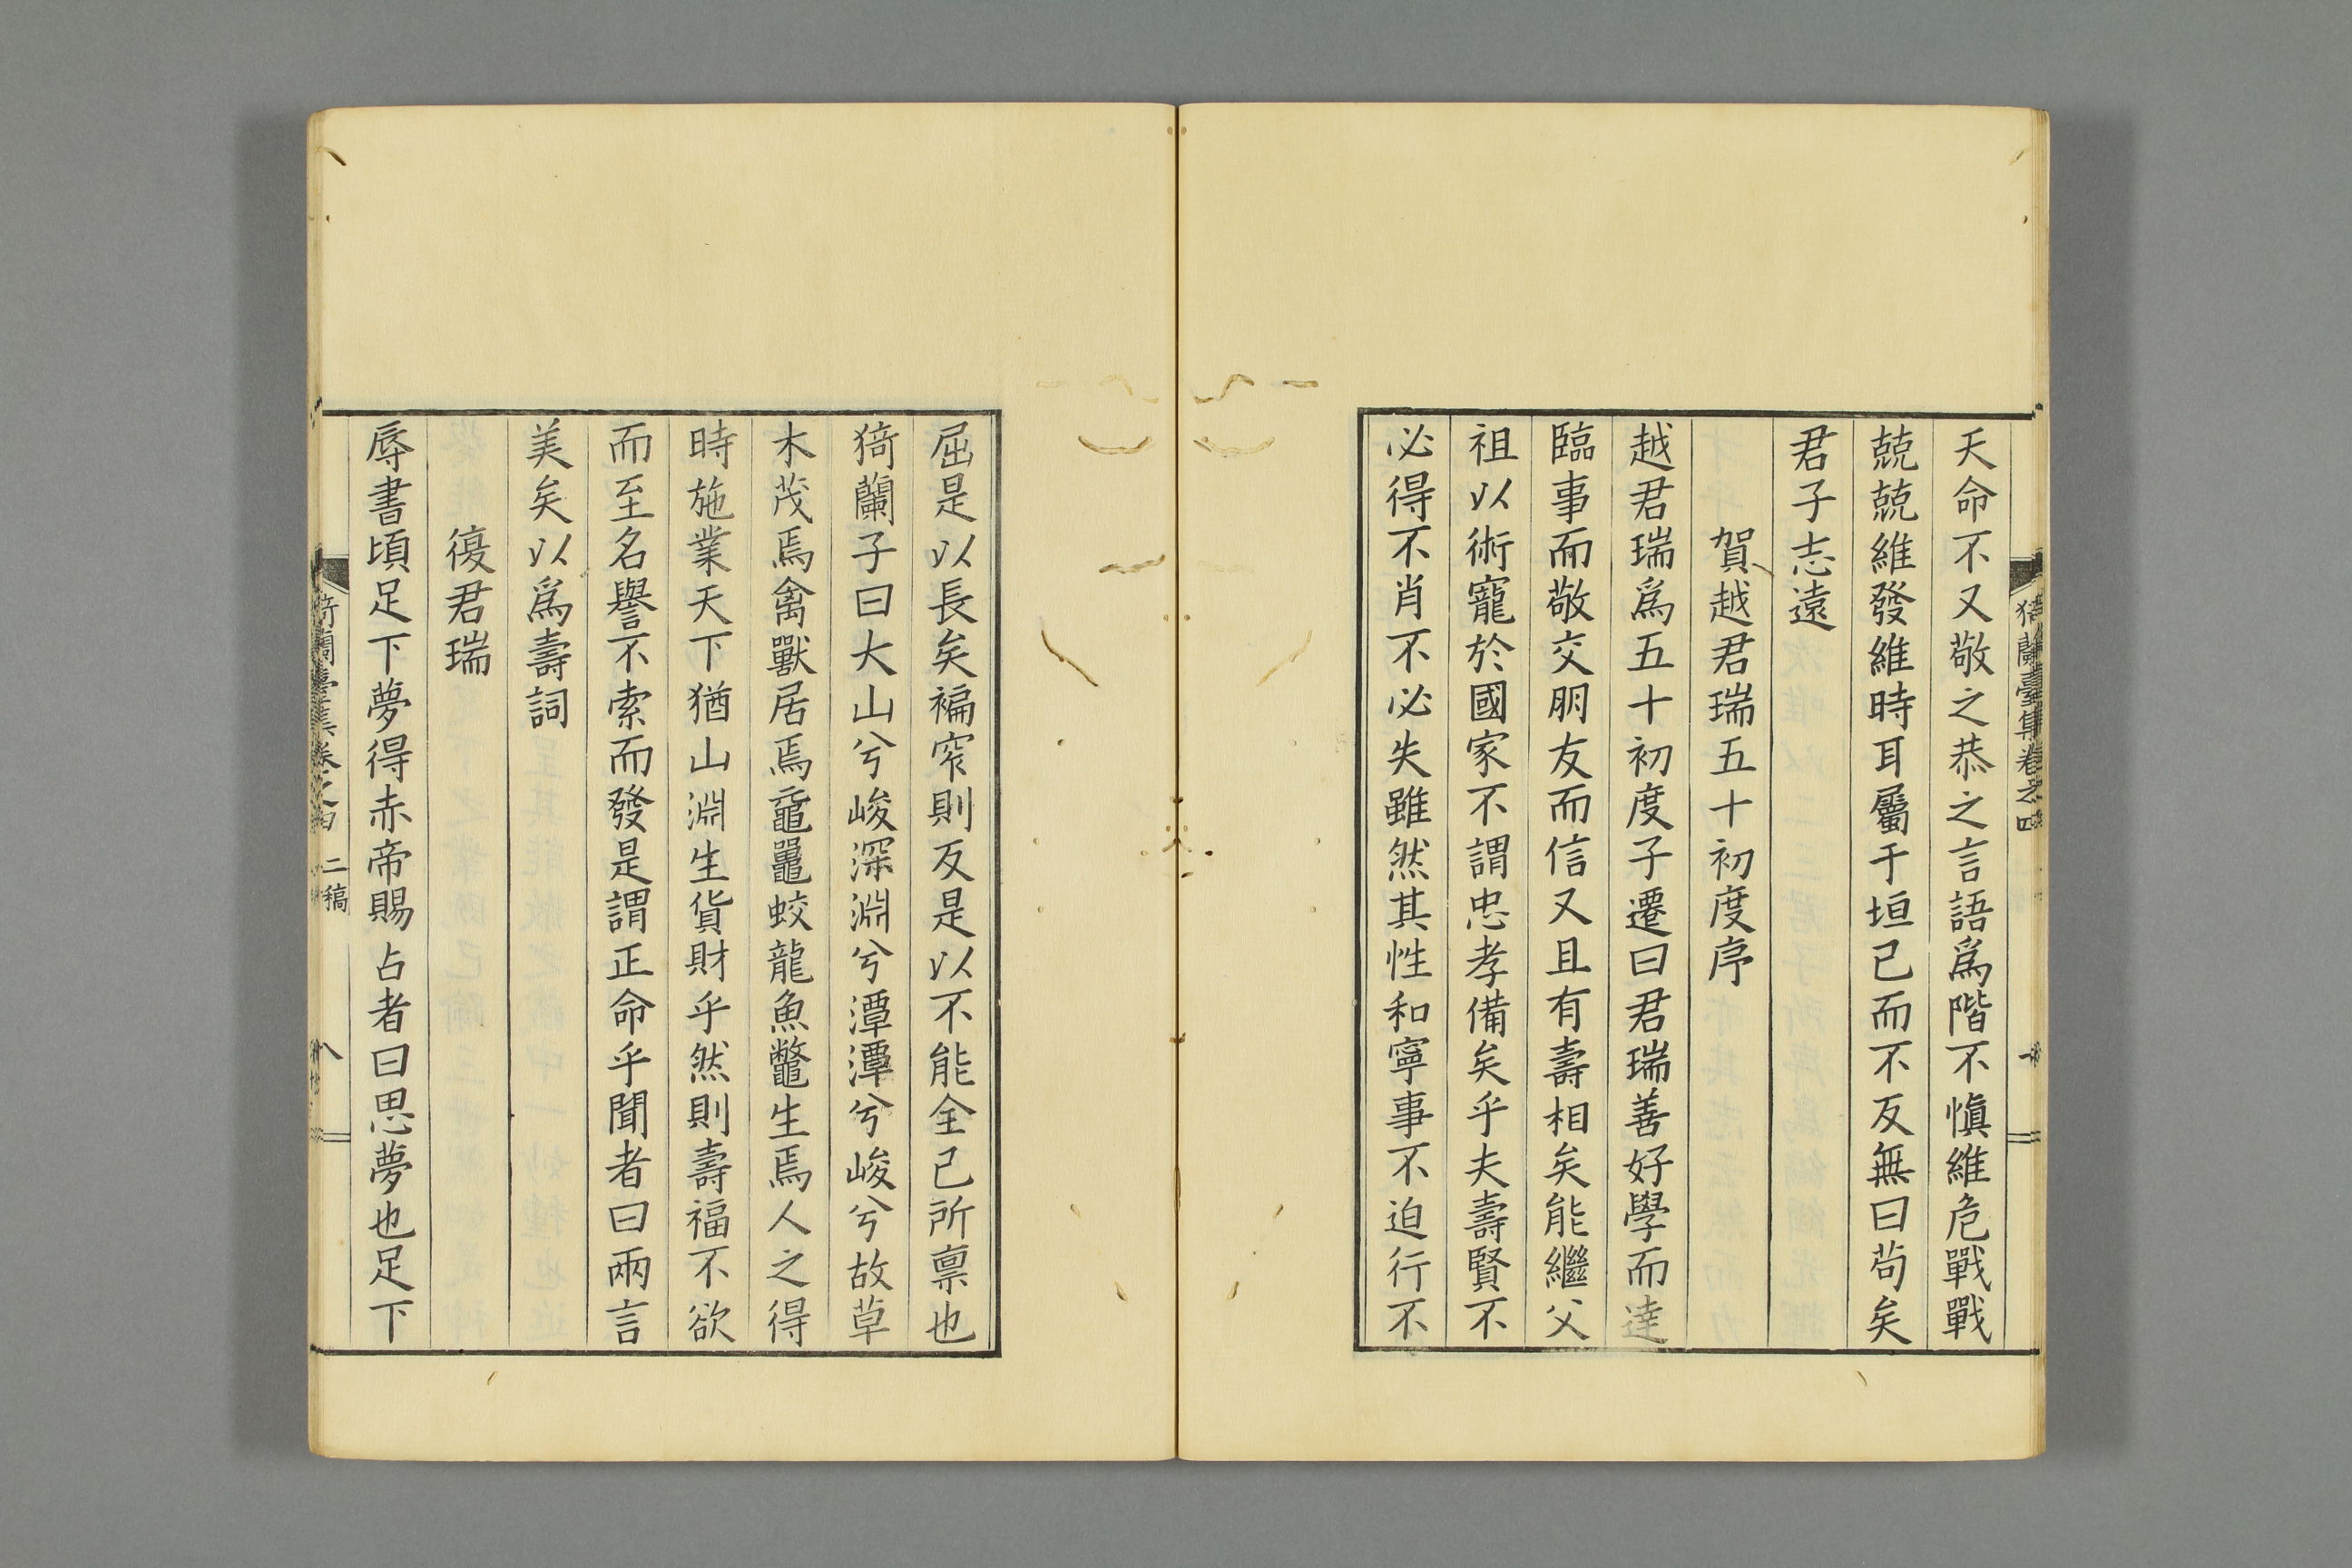 天命不又敬之恭之言語爲階不愼維危戰戰
兢兢維發維時耳屬于垣已而不反無曰苟矣
君子志遠
賀越君瑞五十初度序
越君瑞爲五十初度子遷曰君瑞善好學而達
臨事而敬交朋友而信又且有壽相矣能繼父
祖以術寵於國家不謂忠孝備矣乎夫壽賢不
必得不肖不必失雖然其性和寧事不迫行不
屈是以長矣褊窄則反是以不能全己所禀也
猗蘭子曰大山兮峻深淵兮潭潭兮峻兮故草
木茂焉禽獸居焉黿鼉蛟龍魚鼈生焉人之得
時施業天下猶山淵生貨財乎然則壽福不欲
而至名譽不索而發是謂正命乎聞者曰兩言
美矣以爲壽詞
復君瑞
辱書頃足下夢得赤帝賜占者曰思夢也足下
猗蘭臺集卷之四 二稿 八